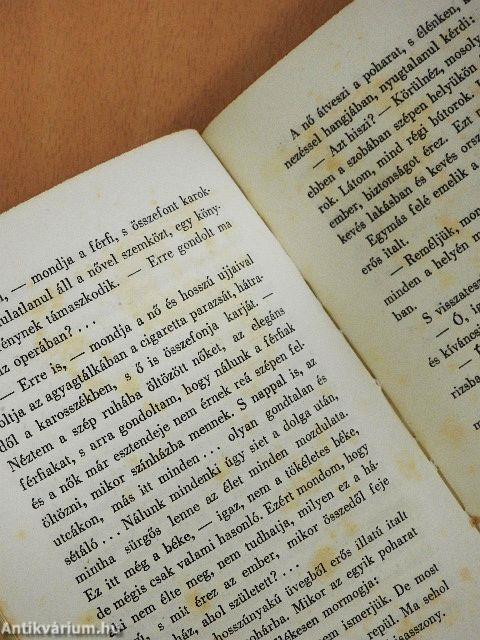 — mondja a férfi, s összefont karok-
dulatlanul áll a nővel szemközt, egy köny-
énynek támaszkodik. — Erre gondolt ma
az operában? . . .
— Erre is, — mondja a nő és hosszú ujjaival
oltja az agyagtálkában a cigaretta parazsát, hátra-
dől a karosszékben, s ő is összefonja karját. —
Néztem a szép ruhába öltözött nőket, az elegáns
férfiakat, s arra gondoltam, hogy nálunk a férfiak
és a nők már esztendeje nem érnek reá szépen fel-
öltözni, mikor színházba mennek. S nappal is, az
utcákon, más itt minden . . . olyan gondtalan és
sétáló . . . Nálunk mindenki úgy siet a dolga után,
mintha sürgős lenne az élet minden mozdulata.
Ez itt még a béke, — igaz, nem a tökéletes béke,
de mégis csak valami hasonló. Ezért mondom, hogy
nem élte meg, nem tudhatja, milyen ez a há-
s mit érez az ember, mikor összedől feje
ház, ahol született? . . .
hosszúnyakú üvegből erős illatú italt
pohárba. Mikor az egyik poharat
mormogja:
nem ismerjük. De most
épül. Ma sehol
A nő átveszi a poharat, s élénken,
nézéssel hangjában, nyugtalanul kérdi:
— Azt hiszi? — Körülnéz, mosoly
ebben a szobában szépen helyükön
rok. Látom, mind régi bútorok.
ember, biztonságot érez. Ezt
kevés lakásban és kevés orsz
Egymás felé emelik a
erős italt.
— Reméljük, mon
minden a helyén m
ban.
S visszatesz
— Ó,
és kíváncsi
rizsba
Antikvárium.hu